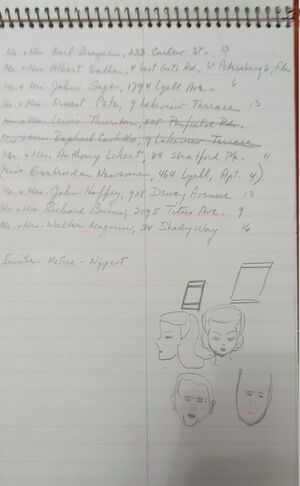 Mr. + Mrs. Earl Bruyea, 233 Curlew St. 13
Mr. + Mrs. Albert Sallen, 4 East Gate Rd., St. Petersburg 6, Fla
Mr. + Mrs. John Sage, 1794 Lyell Ave. 6
Mr. + Mrs. Ernest Pete, 9 Lakeview Terrace 13
Mr. + Mrs. Lewis Thurston, Penfield Rd.
Mr. + Mrs. Raphael 9 Lakeview Terrace
Mr. + Mrs. Anthony Eckert, 88 Stratford Pk. 11
(Miss Gertrude Newcomer, 464 Lyell, Apt. 4)
Mr. + Mrs. John Haffey, 908 Dewey Avenue 13
Mr. + Mrs. Richard Burns, 2095 Titus Ave. 9
Mr. + Mrs. Walter Magonn, 34 Shady Way 16
Invite: McGee - Nippert